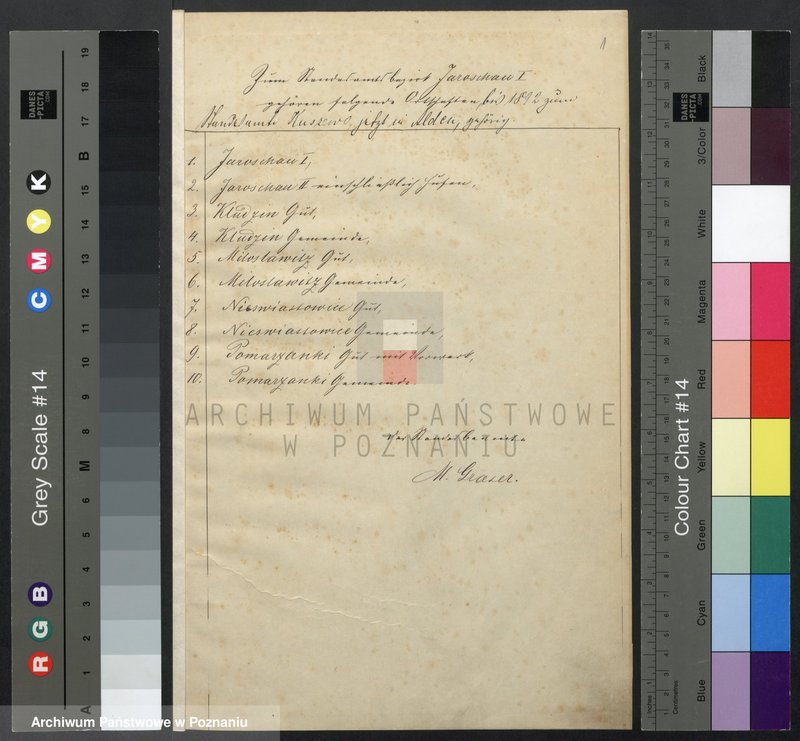 1
Zum Standesamtsbezirk Jaroschau I
gehören folgende Ortschaften, bis 1892 zum
Standesamte Ruszewo, jetzt in Alden, gehörig.
1. Jaroschau I,
2. Jaroschau II einschließlich Hufen,
3. Kludzin Gut,
4. Kludzin Gemeinde,
5. Miloslawitz Gut,
6. Miloslawitz Gemeinde,
7. Nieswiastowice Gut,
8. Nieswiastowice Gemeinde,
9. Pomarzanki Gut mit Vorwerk,
10. Pomarzanki Gemeinde
ARCHIWUM PAŃSTWOWE
W POZNANIU
Der Standesbeamte
M. Graser.
Archiwum Państwowe w Poznaniu
Grey Scale #14
DANES
-PICTA
.COM
R G B
C M Y K
A 1 2 3 4 5 6 M 8 9 10 11 12 13 14 15 B 17 18 19
Colour Chart #14
DANES
-PICTA
.COM
Inches
Centimetres
Black
3/Color
White
Magenta
Red
Yellow
Green
Cyan
Blue